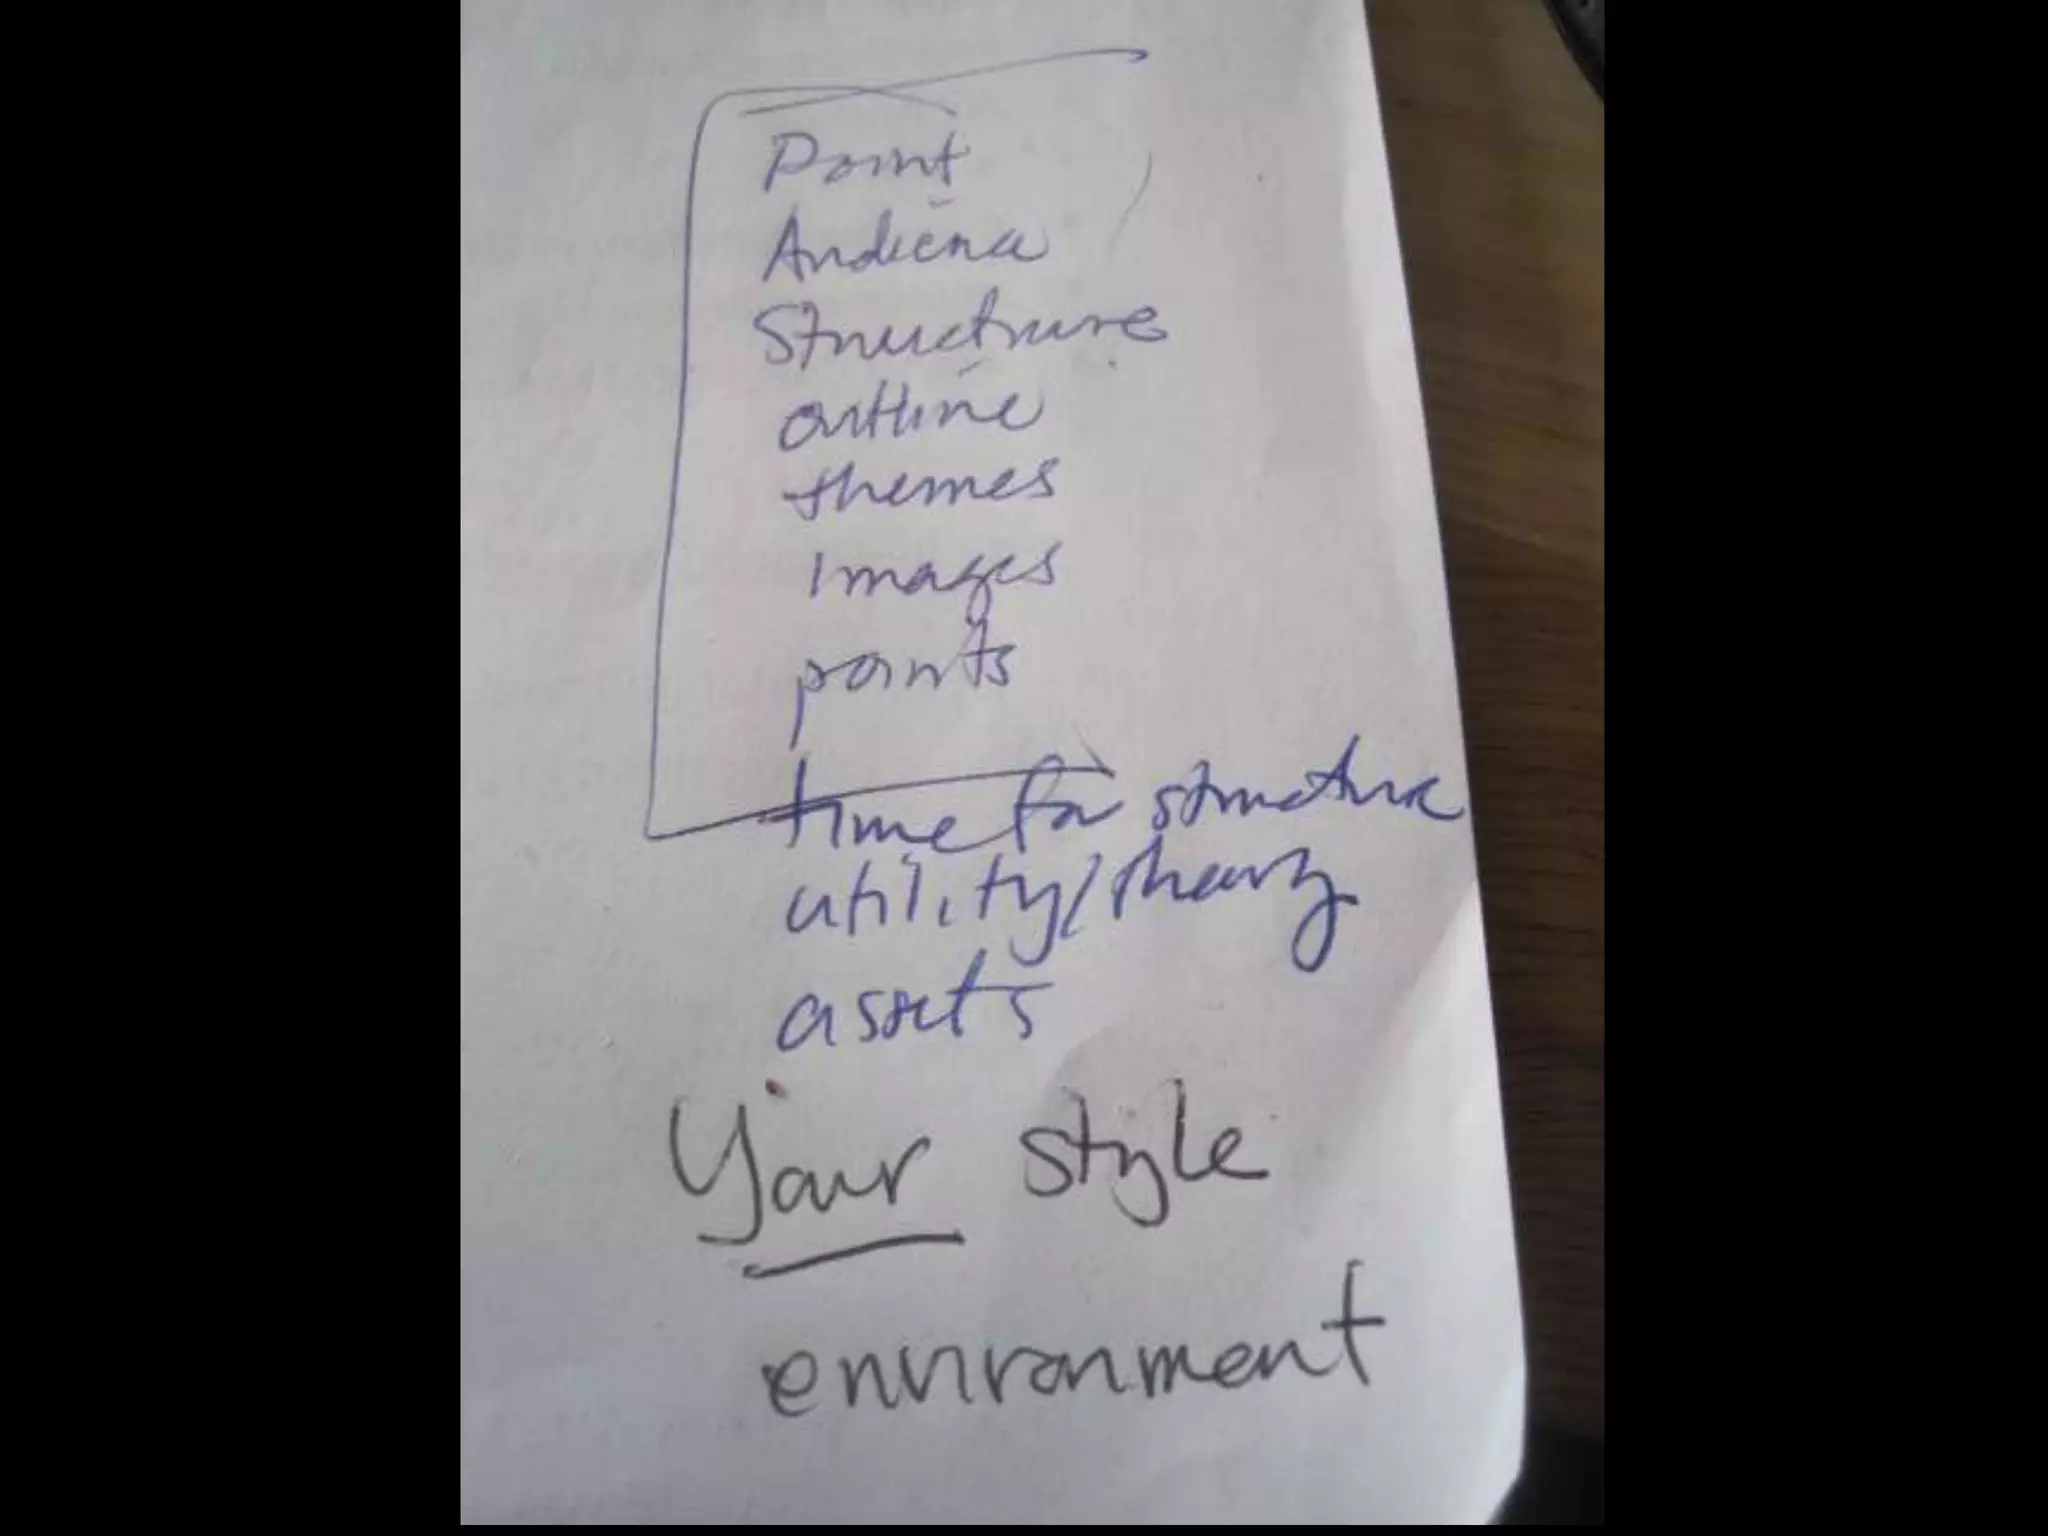 Point
Audience
Structure
outline
themes
images
points
time for structure
utility/theory
assets
Your style
environment